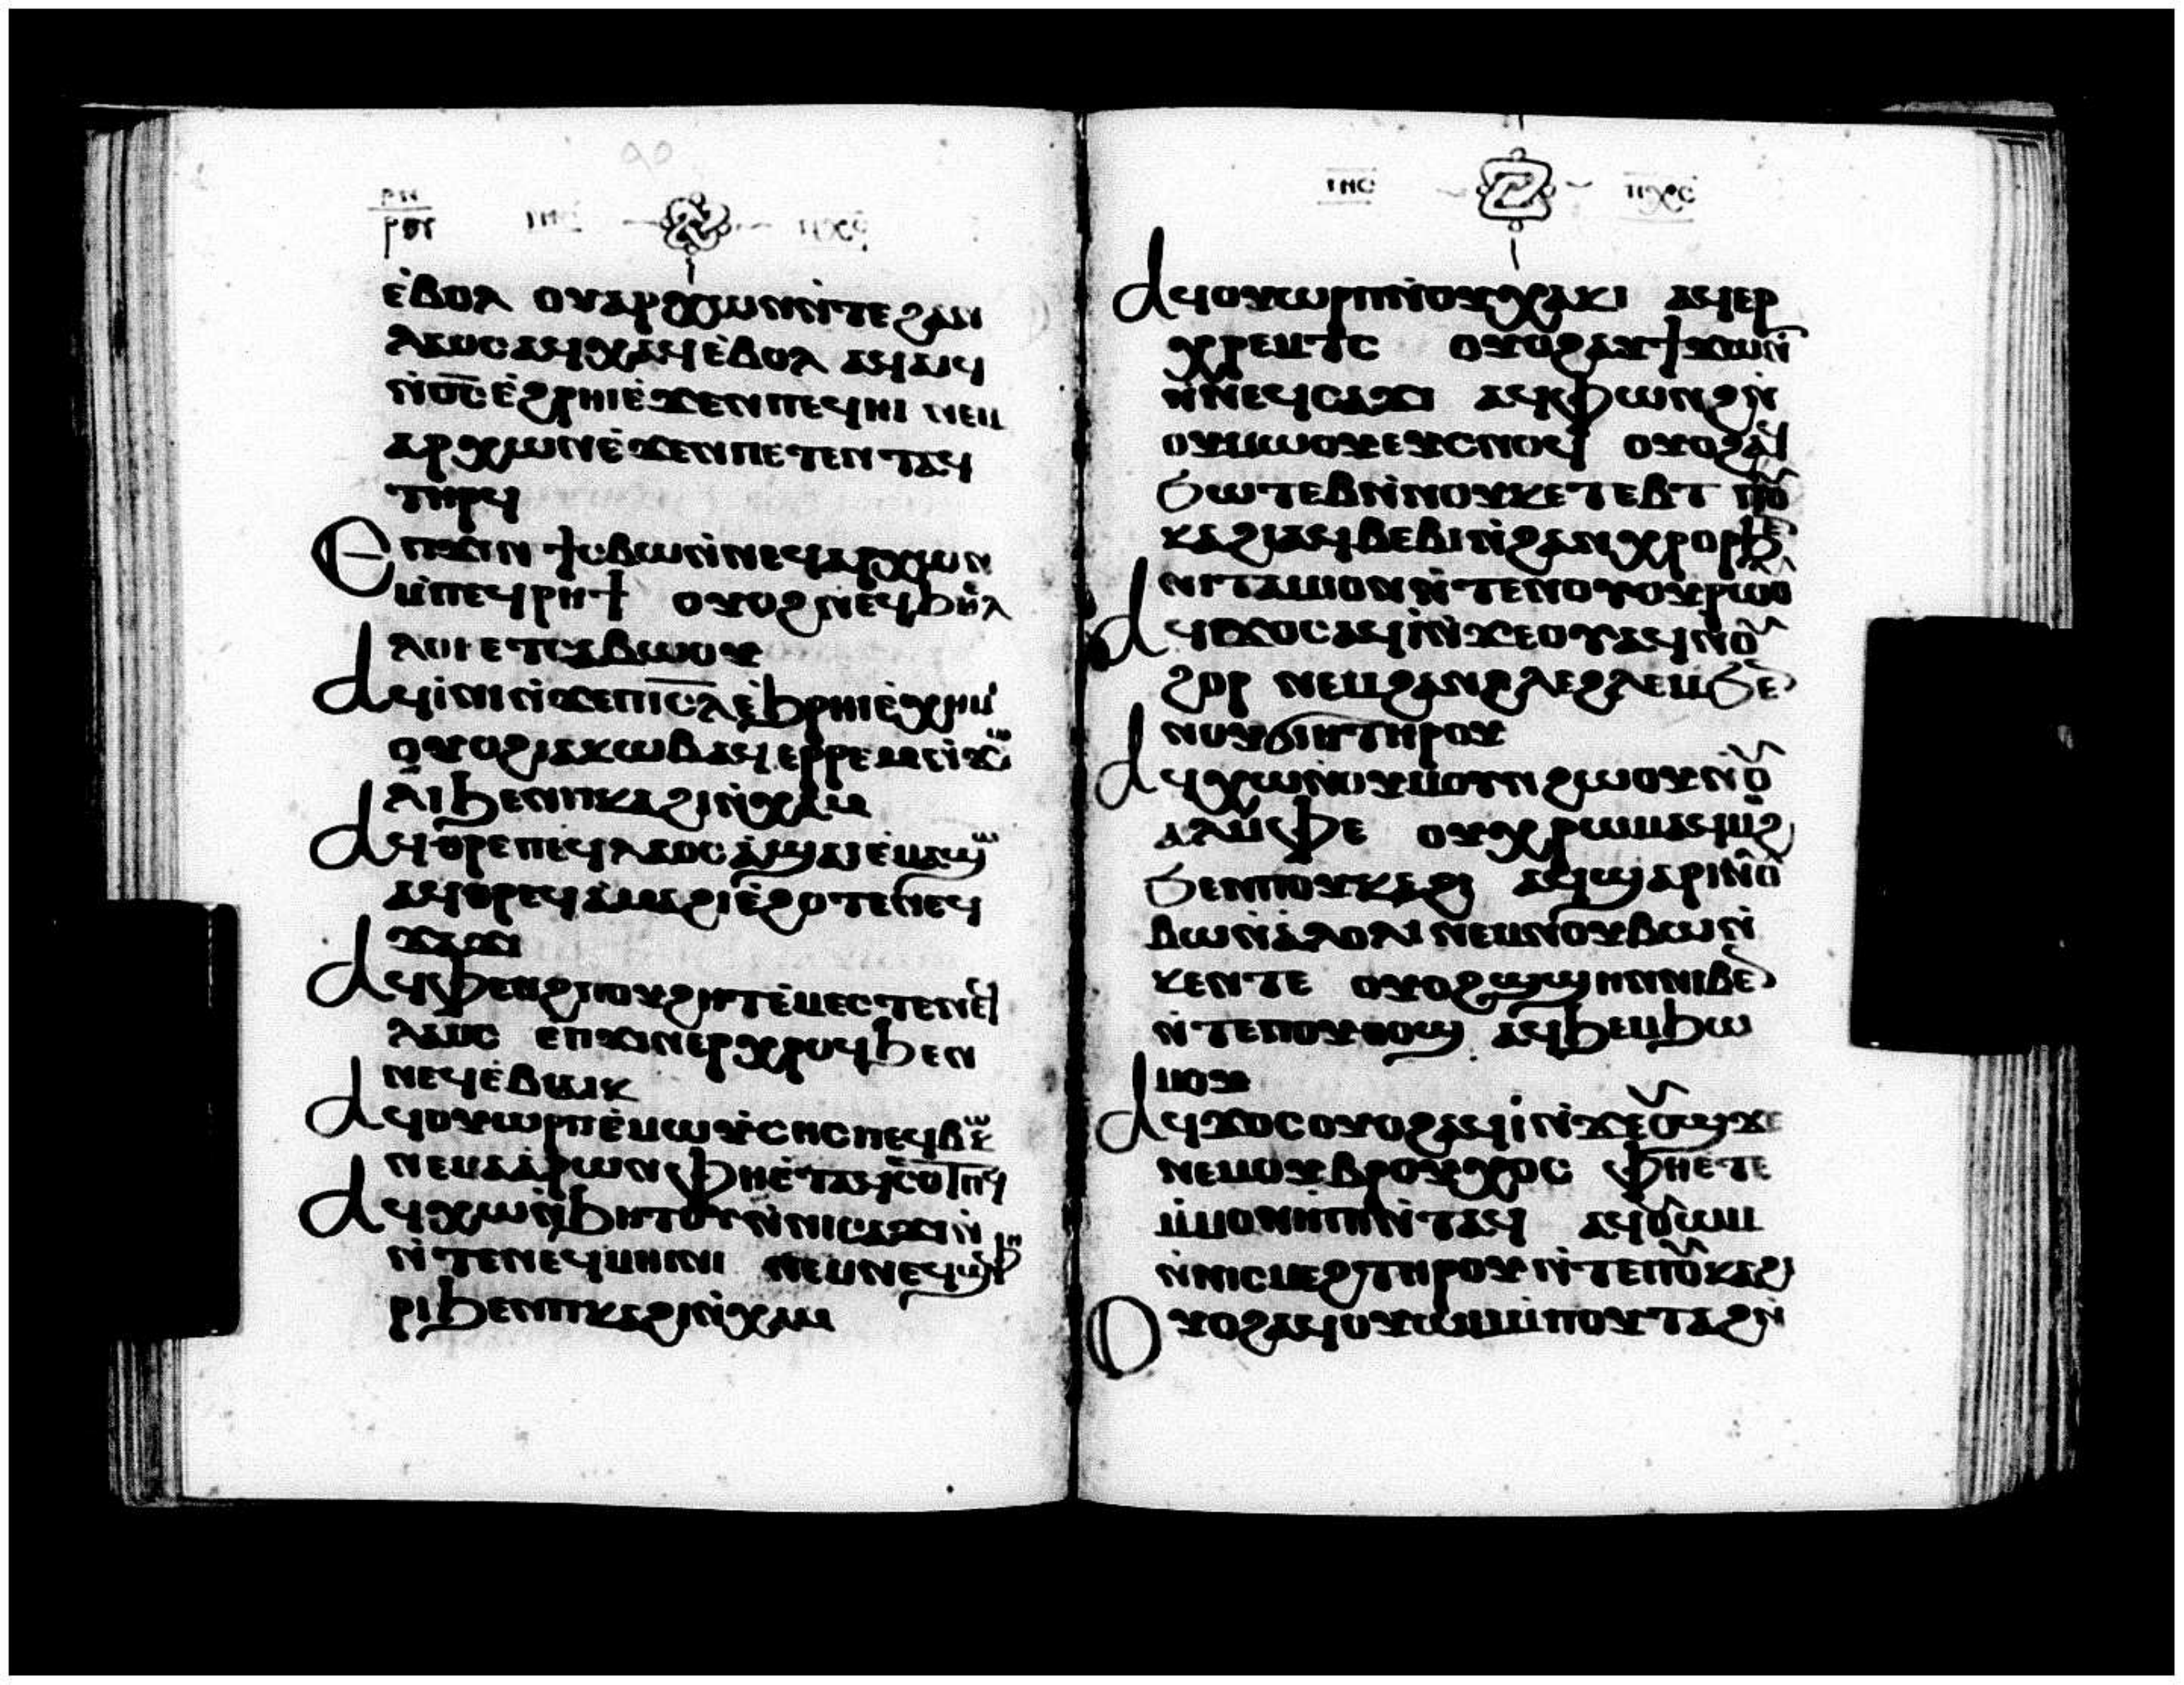 ⲓⲏⲥ ⲡⲭⲥ
ⲉ̀ⲃⲟⲗ ⲟⲩⲁⲣⲭⲱⲛⲛ̀ⲧⲉϩⲁⲛ
ⲗⲁⲟⲥⲁϥⲭⲁϥⲉ̀ⲃⲟⲗ ⲁϥⲁⲓϥ
ⲛ̀ⲟ̅ⲥ̅ⲉ̀ϩⲣⲏⲓⲉ̀ϫⲉⲛⲡⲉϥⲏⲓ ⲛⲉⲙ
ⲁⲣⲭⲱⲛⲉ̀ϫⲉⲛⲡⲉⲧⲉⲛⲧⲁϥ
ⲧⲏⲣϥ
Ⲉⲡϫⲓⲛϯⲥⲃⲱⲛ̀ⲛⲉϥⲁⲣⲭⲱⲛ
ⲙ̀ⲡⲉϥⲣⲏϯ ⲟⲩⲟϩⲛⲉϥϧⲉⲗ
ⲗⲟⲓ ⲉⲧⲥⲁⲃⲱⲟⲩ
Ⲁϥⲓ̀ⲛ̀ϫⲉⲡⲓⲥ̅ⲗ̅ⲉ̀ϧⲣⲏⲓⲉ̀ⲭⲏⲙⲓ
ⲟⲩⲟϩⲓⲁⲕⲱⲃⲁϥⲉⲣⲣⲉⲙⲛ̀ϫⲱ
ⲗⲓϧⲉⲛⲡⲕⲁϩⲓⲛ̀ⲭⲁⲙ
Ⲁϥⲑⲣⲉⲡⲉϥⲗⲁⲟⲥⲁ̀ϣⲁⲓⲉ̀ⲙⲁϣⲱ
ⲁϥⲑⲣⲉϥⲁ̀ⲙⲁϩⲓⲉ̀ϩⲟⲧⲉⲛⲉϥ
ϫⲁϫⲓ
Ⲁϥⲫⲉⲛϩⲡⲟⲩϩⲏⲧⲉ̀ⲙⲉⲥⲧⲉⲡⲉϥ
ⲗⲁⲟⲥ ⲉⲡϫⲓⲛⲉⲣⲭⲣⲟϥϧⲉⲛ
ⲛⲉϥⲉ̀ⲃⲓⲁⲓⲕ
Ⲁϥⲟⲩⲱⲣⲡⲉ̀ⲙⲱⲩ̀ⲥⲏⲥⲡⲉϥⲃⲱⲕ
ⲛⲉⲙⲁ̀ⲁⲣⲱⲛⲫⲏⲉ̀ⲧⲁϥⲥⲟⲧⲡϥ
Ⲁϥⲭⲱⲛ̀ϧⲏⲧⲟⲩⲛ̀ⲛⲓⲥⲁϫⲓⲛ̀
ⲛ̀ⲧⲉⲛⲉϥⲙⲏⲓⲛⲓ ⲛⲉⲙⲛⲉϥϣⲫⲏ
ⲣⲓϧⲉⲛⲡⲕⲁϩⲓⲛ̀ⲭⲁⲙ
ⲓⲏⲥ ⲡⲭⲣⲥ
Ⲁϥⲟⲩⲱⲣⲡⲛ̀ⲟⲩⲭⲁⲕⲓ ⲁϥⲉⲣ
ⲭⲣⲉⲙⲧⲥ ⲟⲩⲟϩⲁⲩϯϫⲱⲛ̀
ⲛ̀ⲛⲉϥⲥⲁϫⲓ ⲁϥⲫⲱⲛϩⲛ̀
ⲟⲩⲙⲱⲟⲩⲉⲩⲥⲛⲟϥ ⲟⲩⲟϩⲁϥ
ϧⲱⲧⲉⲃⲛ̀ⲛⲟⲩⲕⲉⲧⲉⲃⲧ ⲡⲟⲩ
ⲕⲁϩⲓⲁϥⲃⲉⲃⲓⲛ̀ϩⲁⲛⲭⲣⲟⲩⲣ
ⲛⲓⲧⲁⲙⲓⲟⲛⲛ̀ⲧⲉⲛⲟⲩⲟⲩⲣⲱⲟⲩ
Ⲁϥϫⲟⲥⲁϥⲓ̀ⲛ̀ϫⲉⲟⲩⲁϥⲛⲟⲩ
ϩⲟⲣ ⲛⲉⲙϩⲁⲛϩⲗⲉϩⲗⲉⲙϧⲉⲛ
ⲛⲟⲩϭⲓⲏⲧⲏⲣⲟⲩ
Ⲁϥⲭⲱⲛⲟⲩⲙⲟⲩⲛϩⲱⲟⲩⲛⲟⲩ
ⲁⲗⲙ̀ⲫⲉ ⲟⲩⲭⲣⲱⲙⲁϥⲙⲟϩ
ϧⲉⲛⲡⲟⲩⲕⲁϩⲓ ⲁϥϣⲁⲣⲓⲛⲟⲩ
ⲃⲱⲛ̀ⲁ̀ⲗⲟⲗⲓ ⲛⲉⲙⲛⲟⲩⲃⲱⲛ̀
ⲕⲉⲛⲧⲉ ⲟⲩⲟϩϣϣⲏⲛⲛⲓⲃⲉⲛ
ⲛ̀ⲧⲉⲡⲟⲩⲑⲟϣ ⲁϥϧⲉⲙϧⲱ
ⲙⲟⲩ
Ⲁϥϫⲟⲥⲟⲩⲟϩⲁϥⲓ̀ⲛ̀ϫⲉⲟⲩϣϫⲉ
ⲛⲉⲙⲟⲩⲃⲣⲟⲩⲭⲟⲥ ⲫⲏⲉ̀ⲧⲉ
ⲙ̀ⲙⲟⲛⲏⲡⲓⲛ̀ⲧⲁϥ ⲁϥⲟⲩⲱⲙ
ⲛ̀ⲛⲓⲥⲓⲙⲉϩⲧⲏⲣⲟⲩⲛ̀ⲧⲉⲡⲟⲩⲕⲁϩⲓ
Ⲟⲩⲟϩⲁϥⲟⲩⲱⲙⲙ̀ⲡⲟⲩⲧⲁϩⲛ̀